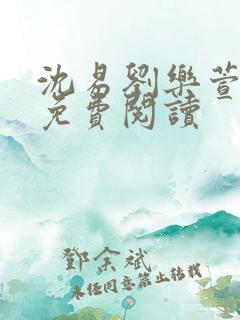 沈易劉樂萱
免費閱讀
鄧余斌
未經同意禁止轉載